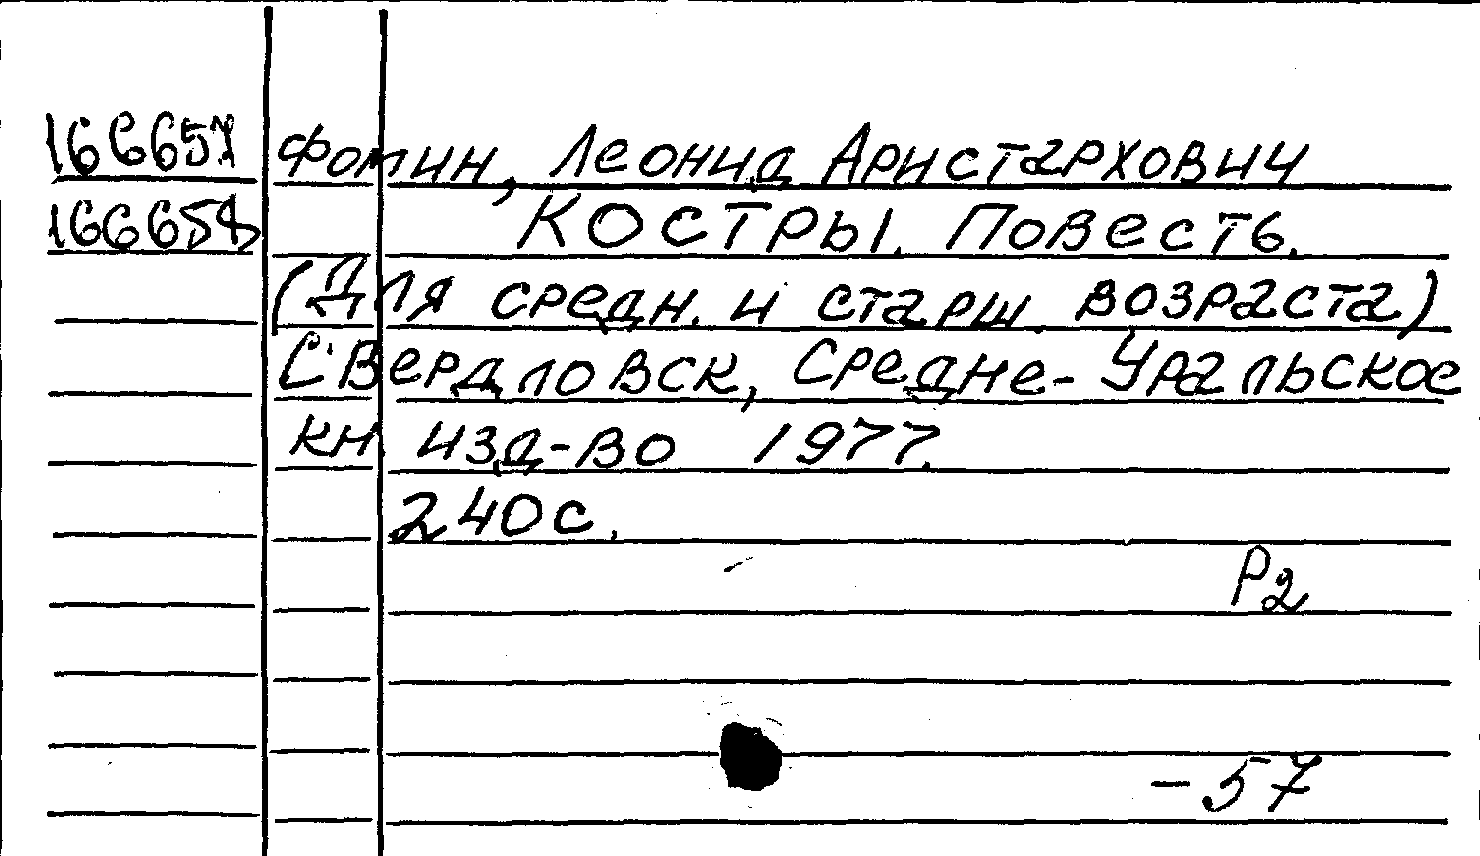 166657 Фомин, Леонид Аристархович
166658 КОСТРЫ. Повесть.
(Для средн. и старш. возраста)
Свердловск, Средне-Уральское
кн. изд-во 1977.
240с.
Р2
-57